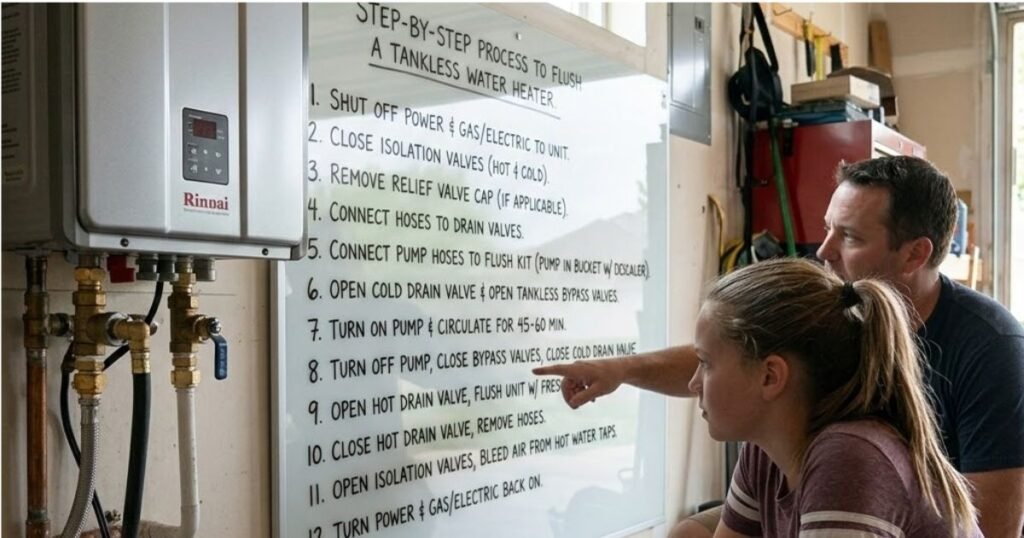 STEP-BY-STEP PROCESS TO FLUSH
A TANKLESS WATER HEATER
1. SHUT OFF POWER & GAS/ELECTRIC TO UNIT.
2. CLOSE ISOLATION VALVES (HOT & COLD).
3. REMOVE RELIEF VALVE CAP (IF APPLICABLE).
4. CONNECT HOSES TO DRAIN VALVES.
5. CONNECT PUMP HOSES TO FLUSH KIT (PUMP IN BUCKET W/ DESCALER).
6. OPEN COLD DRAIN VALVE & OPEN TANKLESS BYPASS VALVES.
7. TURN ON PUMP & CIRCULATE FOR 45-60 MIN.
8. TURN OFF PUMP, CLOSE BYPASS VALVES, CLOSE COLD DRAIN VALVE
9. OPEN HOT DRAIN VALVE, FLUSH UNIT W/
10. CLOSE HOT DRAIN VALVE, REMOVE HOSES.
11. OPEN ISOLATION VALVES, BLEED AIR FROM HOT WATER TAPS.
12. TURN POWER & GAS/ELECTRIC BACK ON.
Rinnai